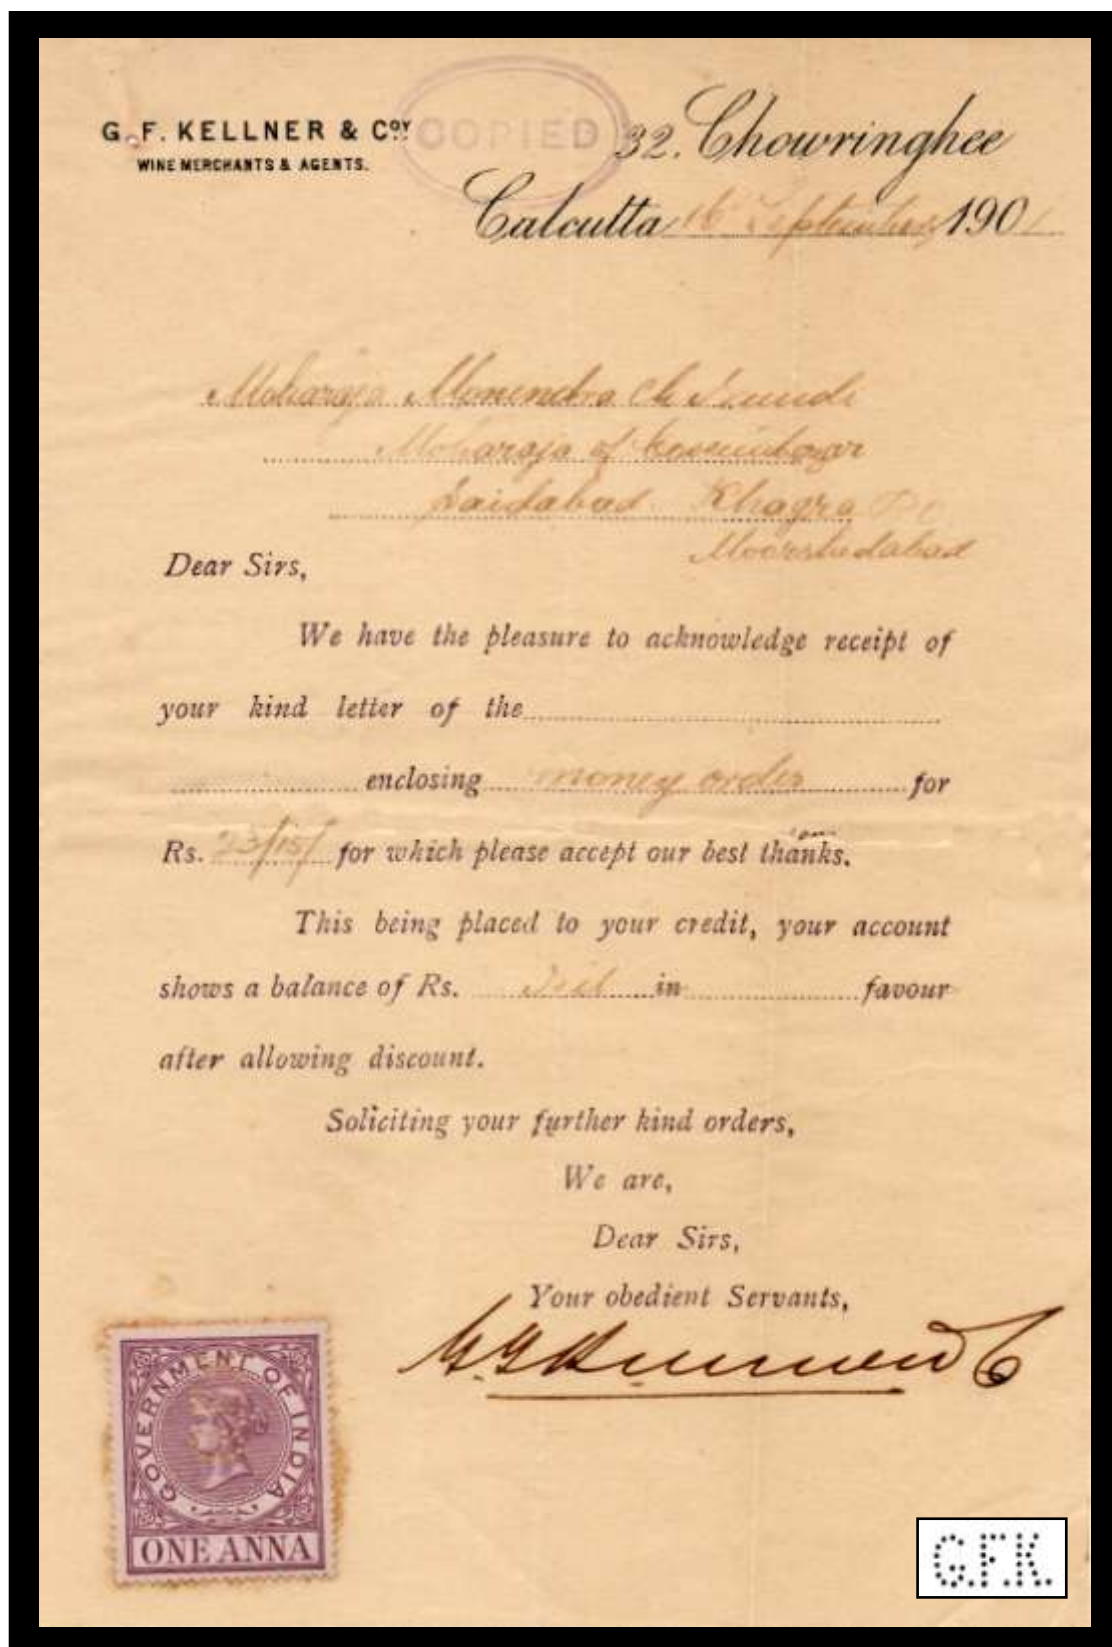 G. F. KELLNER & Coy
WINE MERCHANTS & AGENTS.
COPIED
32. Chowringhee
Calcutta 16 September 1901
Moharaja Monendra Ch Naundi
Moharaja of Cossimbazar
Saidabad Khagra P.O
Moorshedabad
Dear Sirs,
We have the pleasure to acknowledge receipt of
your kind letter of the
enclosing money order for
Rs. 23/15/ for which please accept our best thanks.
This being placed to your credit, your account
shows a balance of Rs. Nil in favour
after allowing discount.
Soliciting your further kind orders,
We are,
Dear Sirs,
Your obedient Servants,
GOVERNMENT OF INDIA
ONE ANNA
G.F.K.